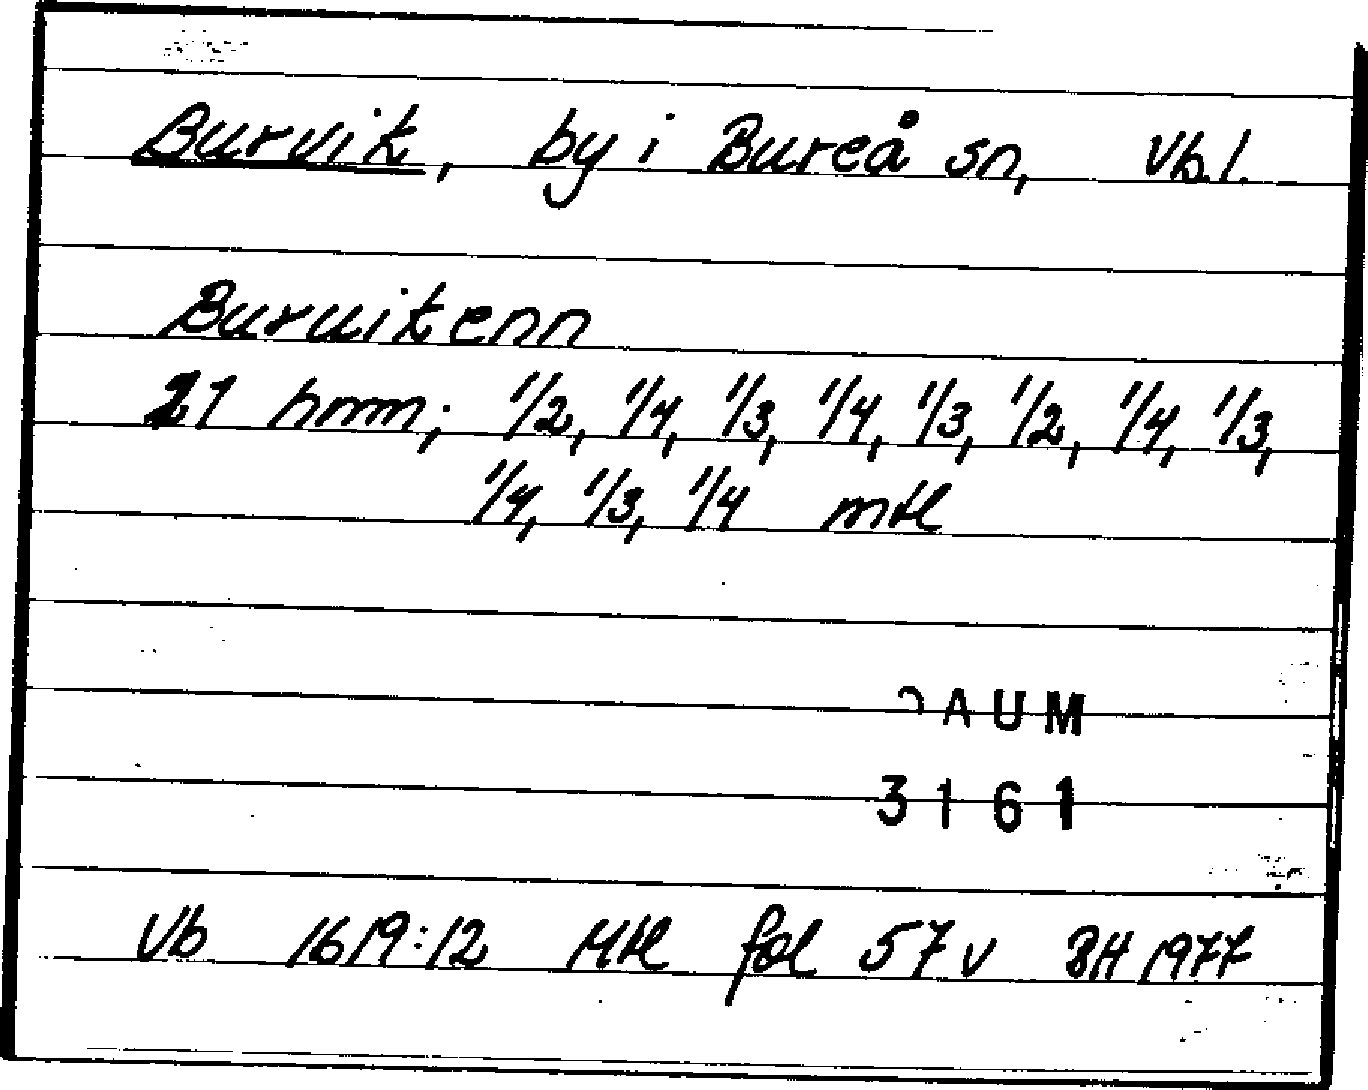 Burvik, by i Bureå sn, Vb.l.
Buruikenn
21 hmm; 1/2, 1/4, 1/3, 1/4, 1/3, 1/2, 1/4, 1/3,
1/4, 1/3, 1/4 mtl
DAUM
3161
Vb 1619:12 Mtl fol 57 v BH 1977